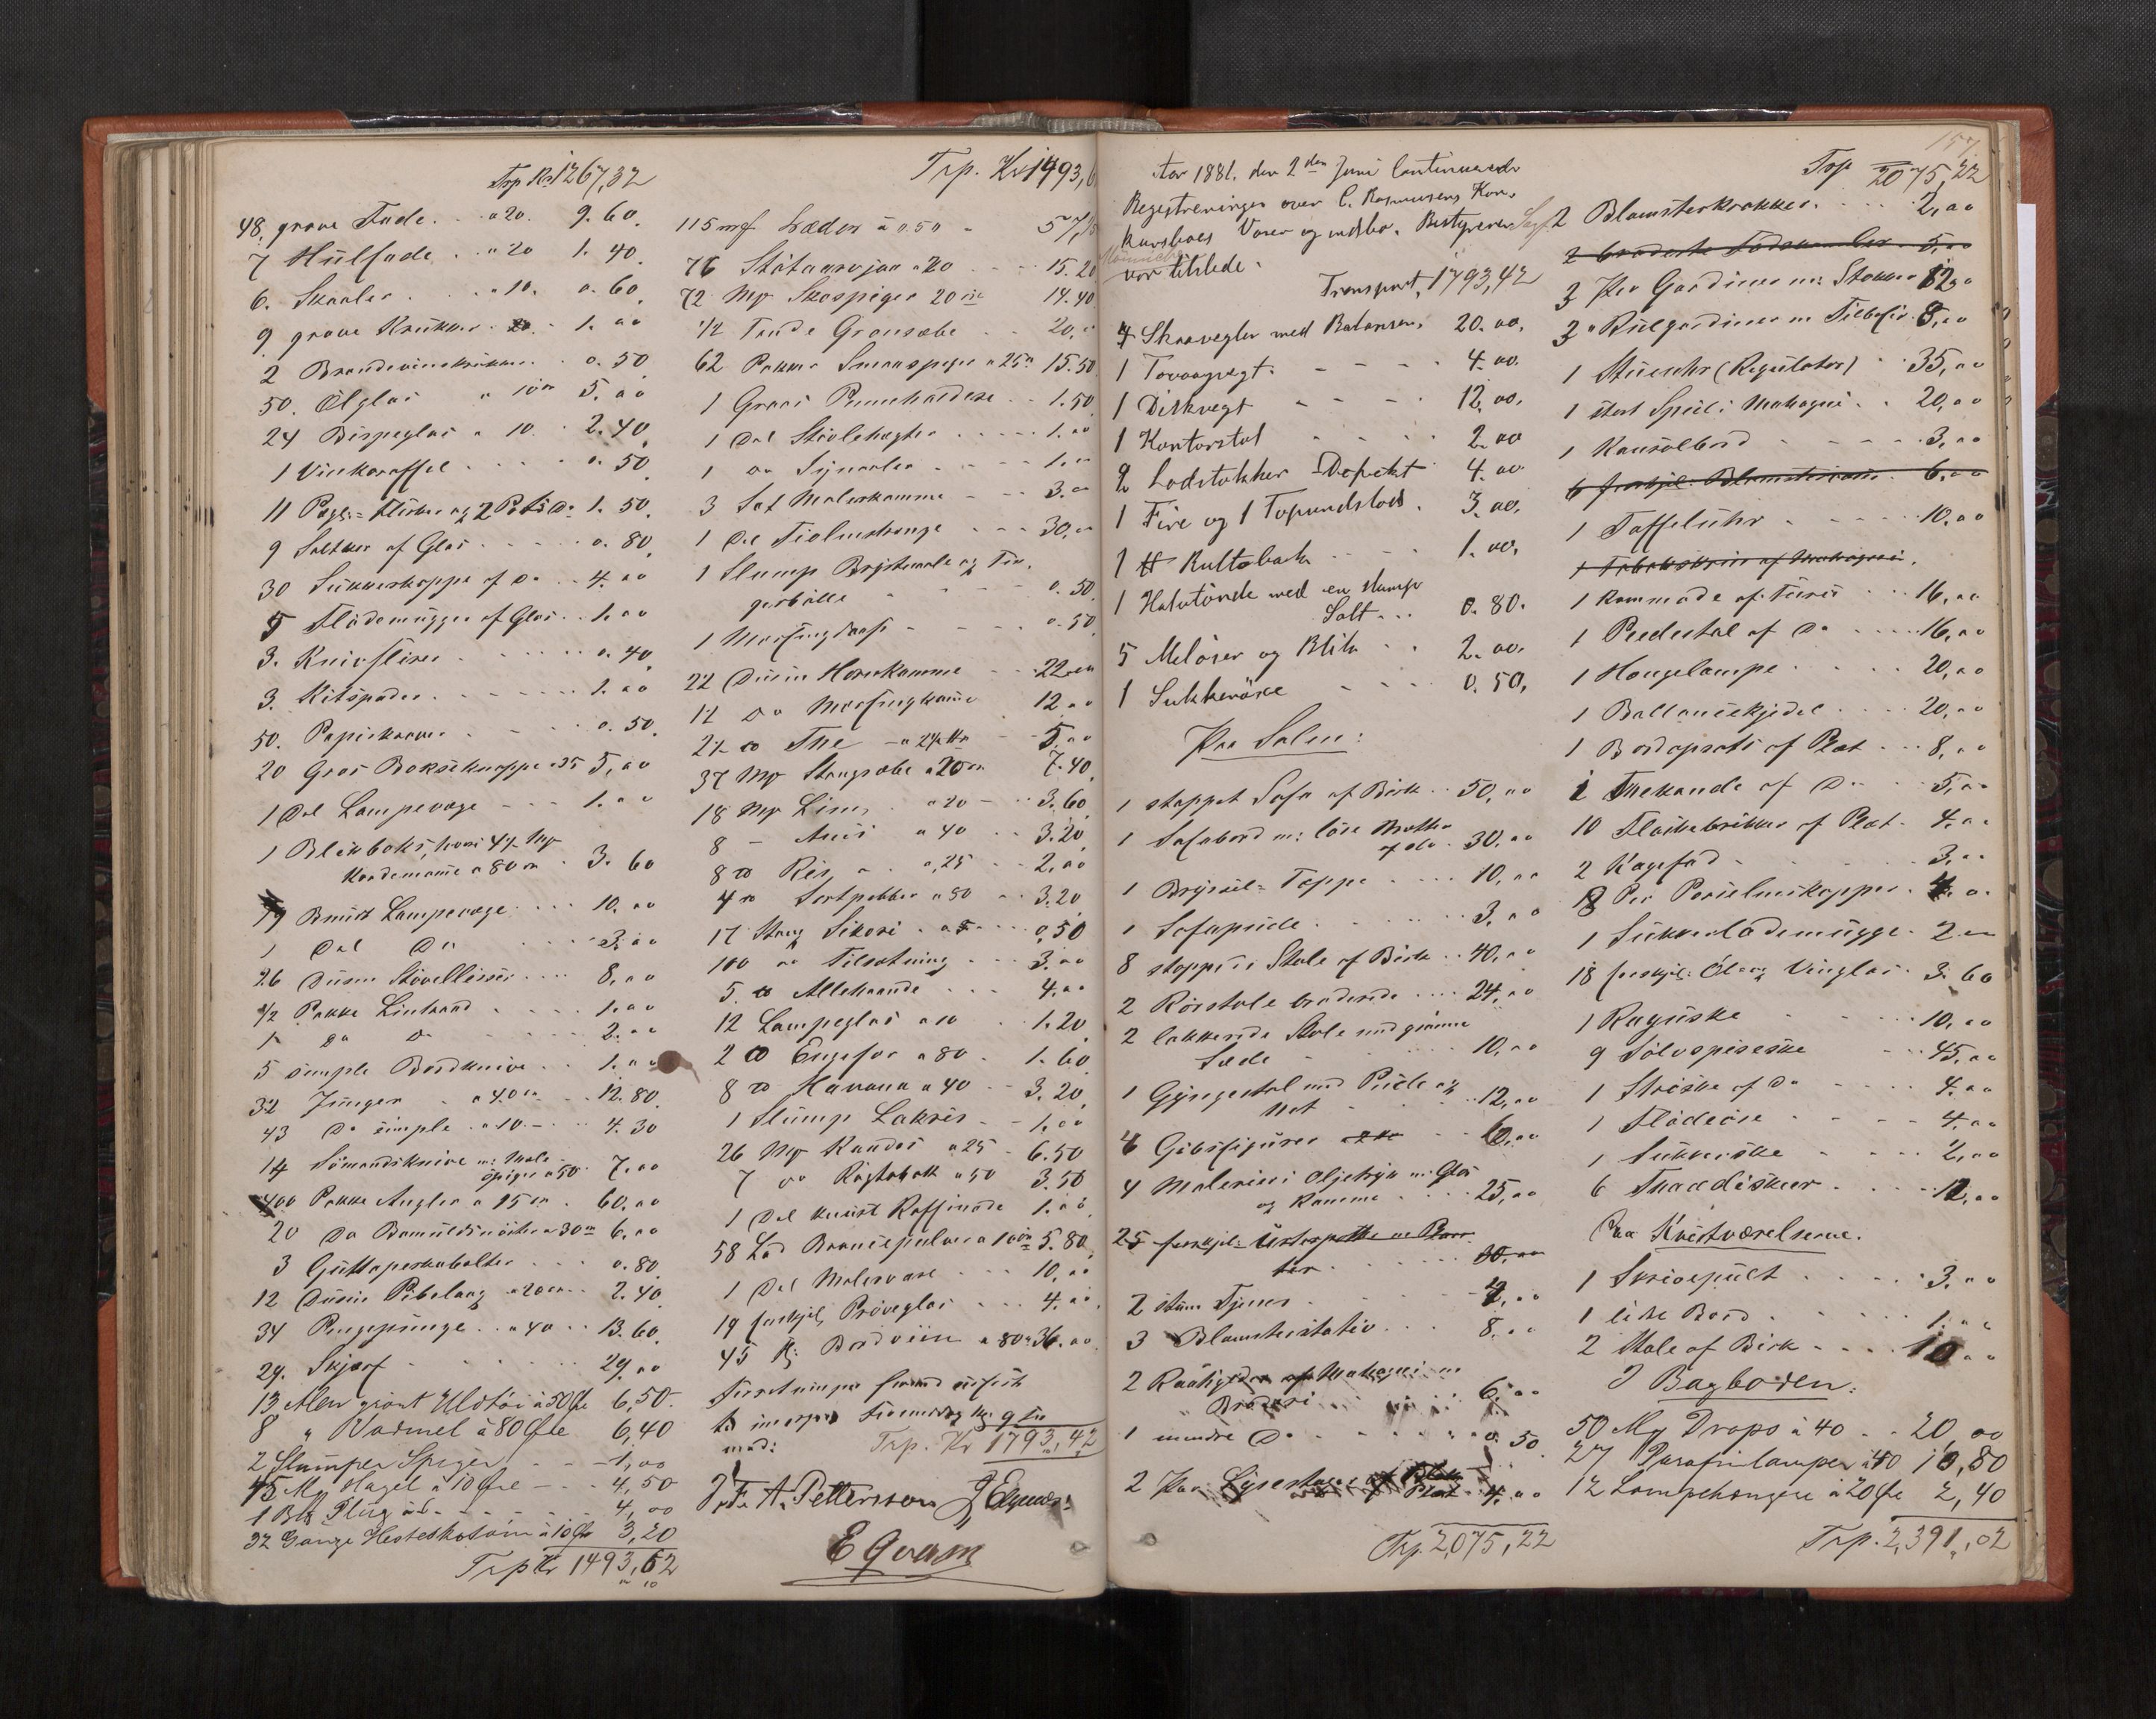 Trp Kr. 1267,32
48. grove Fade . . a 20. 9. 60.
7 Hulfade . . a 20 1. 40.
6. Skaaler . . . a 10. 0. 60.
9 grove Krukker . 1. 00
2 Brændevinskrukker . . 0. 50
50. Ølglas a 10 Øre 5. 00
24 Bispeglas a 10. . 2. 40
1 Vinkaraffel . . . . 0. 50
11 Pægle= Flasker og 2 Potts Do 1. 50.
9 Saltkar af Glas . . . . 0. 80
30 Sukkerkoppe af Do . . 4. 00
5 Flødemugger af Glas . . 1. 00
3. Knivslirer . . . . . 0. 40
3. Kitspader . . . . . 1. 00
50. Papirkraver . . . 0. 50.
20 Gros Bukseknappe a 25 5, 00
1 Del Lampevæge . . . 1. 00
1 Blikboks, hvori 4½ Mp
Kardemomme a 80 Øre . 3. 60
19 Bundt Lampevæge . . . 10. 00
1 Del Do . . . 3. 00
26 Dusin Støvelliser . . . 8, 00
½ Pakke Lintraad . . . . 1. 00
1 Do Do . . . 2. 00
5 simple Bordknive . . 1. 00
32 Junger . a 40 Øre . . 12. 80.
43 Do simple . a 10 . . . 4. 30
14 Sømandsknive m: Male
spiger a 50 7. 00
400 Pakke Angler a 15 Øre . 60. 00
20 Do Bomuldsnöster a 30 Øre 6. 00
3 Guttaperkabolter . . . 0. 80
12 Dusin Pibelaag a 20 Øre . 2. 40
34 Pengepunge . . a 40 . . 13. 60.
29. Skjærf . . . . . . 29. 00
13 Alen grønt Uldtøi à 50 Øre 6,50.
8 " Vadmel à 80 Øre 6,40
2 Slumper Spiger . . - 1,00
45 Mp Hagel à 10 Øre — . . 4,50
1 Blk Plüg à d . . . . . . 4, 00
32 Gange Hesteskosöm à 10 Øre 3,20
Trp Kr 1493,62
Trp. Kr 1493,6
115 mp Læder à 0.50 - 57,
76 Staatauvojaa a 20 . . . . 15. 20
72 Mp Skospiger 20 Øre 14. 40.
½ Tønde Grønsæbe . . 20.
62 Pakker Smaaspiger a 25 Øre 15. 50
1 Gros Penneholdere . . 1. 50
1 Del Støvlehægter . . . . . 1. 00
1 Do Synaaler . . . . 1.
3 Sæt Malerkamme . . . 3.
1 Del Fiolinstrænge . . . 30,
1 Slump Brystnaale og Fin-
gerbølle . . . . . 0. 50
1 Messingkaase . . . . . 0. 50
22 Dusin Hornkamme . . . 22.
12 Do Messingkamme 12 00
2½ Do The - a 2 Kr . - 5. 00
37 Mp Stangsæbe a 20 Øre 7. 40
18 Mp Lim, . a 20 . . . 3. 60
8 - Anis a 40 . . 3. 20
8 Do Ris . . a, 25 . . . 2. 00
4 Do Sortpebber a 80 . . 3. 20
17 Stang Sikori . . . . 0. 50
100 Do Tilsætning . . . 3. 00
5. Do Allehaande . . . 4. 00
12 Lampeglas a 10 . 1. 20
2 Do Engefør a 80 . 1. 60
8 Do Havana a 40 . . 3. 20
1 Slump Lakris . . 1. 00
26 Mp Kandis a 25 . 6. 50
7 Do Røgtobak a 50 3. 50
1 Del knust Raffinade 1. 00
58 Lod Broncepulver a 10 Øre 5. 80
1 Del Malervare . . 10, 00
19 forskjel, Prøveglas . . . 4. 00
45 Fl; Bordviin a 80 Øre 36. 00
Trp. Kr 1793,42
F. A. Pettersson
E Qvam
157.
Aar 1881. den 2den Juni Continueredes
Registreringen over C. Rasmussens Kon-
kursboes Varer og indbo. Bestyreren Sagf
var tilstede.
Transport, 1793,42
4 Skaavegter med Balansen, 20. 00.
1 Tovaagvegt. - - - 4. 00.
1 Diskvegt - - - - 12. 00.
1 Kontorstol - - - - 2. 00
2 Lodstokker Defekt . 4. 00
1 Fire og 1 Topundslod . 3. 00.
1 H Rultobak . . . . 1. 00.
1 Halvtønde med en slump
Salt . . . 0. 80.
5 Meløser og Blik . . 2. 00.
1 Sukkerøxe - - - 0. 50,
Paa Salen:
1 stoppet Sofa af Birk . . 50, 00
1 Sofabord m: løse
af do . 30, 00
1 Bryssel= Teppe . . . . 10, 00
1 Sofapude . . . . . . 3. 00
8 stoppede Stole af Birk . . 40, 00
2 Rørstole broderede . . . . 24, 00
2 lakkerede Stole med grønne
Sæde . . . . . . 10, 00
1 Gyngestol med Pude og
Net . . . . . 12, 00
4 Gibsfigurer . . . 6, 00
4 Malerier Oljetryk m: Glas
og Ramme . . . . 25, 00
25 forskjel:
ter . . . . . . 30. 00
2 stum Tjener . . . . . 4, 00
3 Blomsterstativ . . . 8. 00
2 af Mahogni m
Broderi . . . . . . 6, 00
1 mindre Do . . . . . . 0. 50
2 Par Lysestager af
Plet 4. 00
Trp. 2,075,22
Trp 2075,22
2 Blomsterkrukker. . . . . 2, 00
2 broderte . 5, 00
3 Par Gardiner m: Stokker 12, 00
3 " Rulgardiner m Tilbehør . 8, 00
1 Stueuhr (Regulator) . . 35, 00
1 stort Speil i Mahogni . . 20, 00
1 Konsolbord . . . . . 3, 00
6 forskjel: . 6, 00
1 Taffeluhr . . . . . 10, 00
1 Tobakskrin af Mahogni.
1 Kommode af Furu . . . 16, 00
1 Peedestal af Do . . . . 16, 00
1 Hængelampe . . . . . 20, 00
1 Ballanskjedel . . . . 20, 00
1 Bordopsats af Plet . . . 8, 00
1 Thekande af Do . . . 5, 00
10 Flaskebrikker af Plet . 4. 00
2 Kagefad . . . . . . 3, 00
8 Par Porselenskopper . 4. 00
1 Sukker&flødemugge . 2
18 forskjel: Øl og Vinglas . 3. 60
1 Raguske . . . . . 10, 00
9 Sølvspiseske . . . 45, 00
1 Strøske af Do . . . . 4. 00
1 Flødeøse . . . . 4. 00
1 Sukkerske . . . . 2, 00
6 Theeddiskeer . . . . 12, 00
Paa Kvistværelserne.
1 Skrivepult . . . . . 3. 00
1 lidet Bord . . . . . 1. 00
2 Stole af Birk . . . . 10 00
I Bagboden:
50 Mp Drops à 40 . . 20, 00
27 Parafinlamper à 40 10,80
12 Lampehængere à 20 Øre 2, 40
Trp. 2,391,02